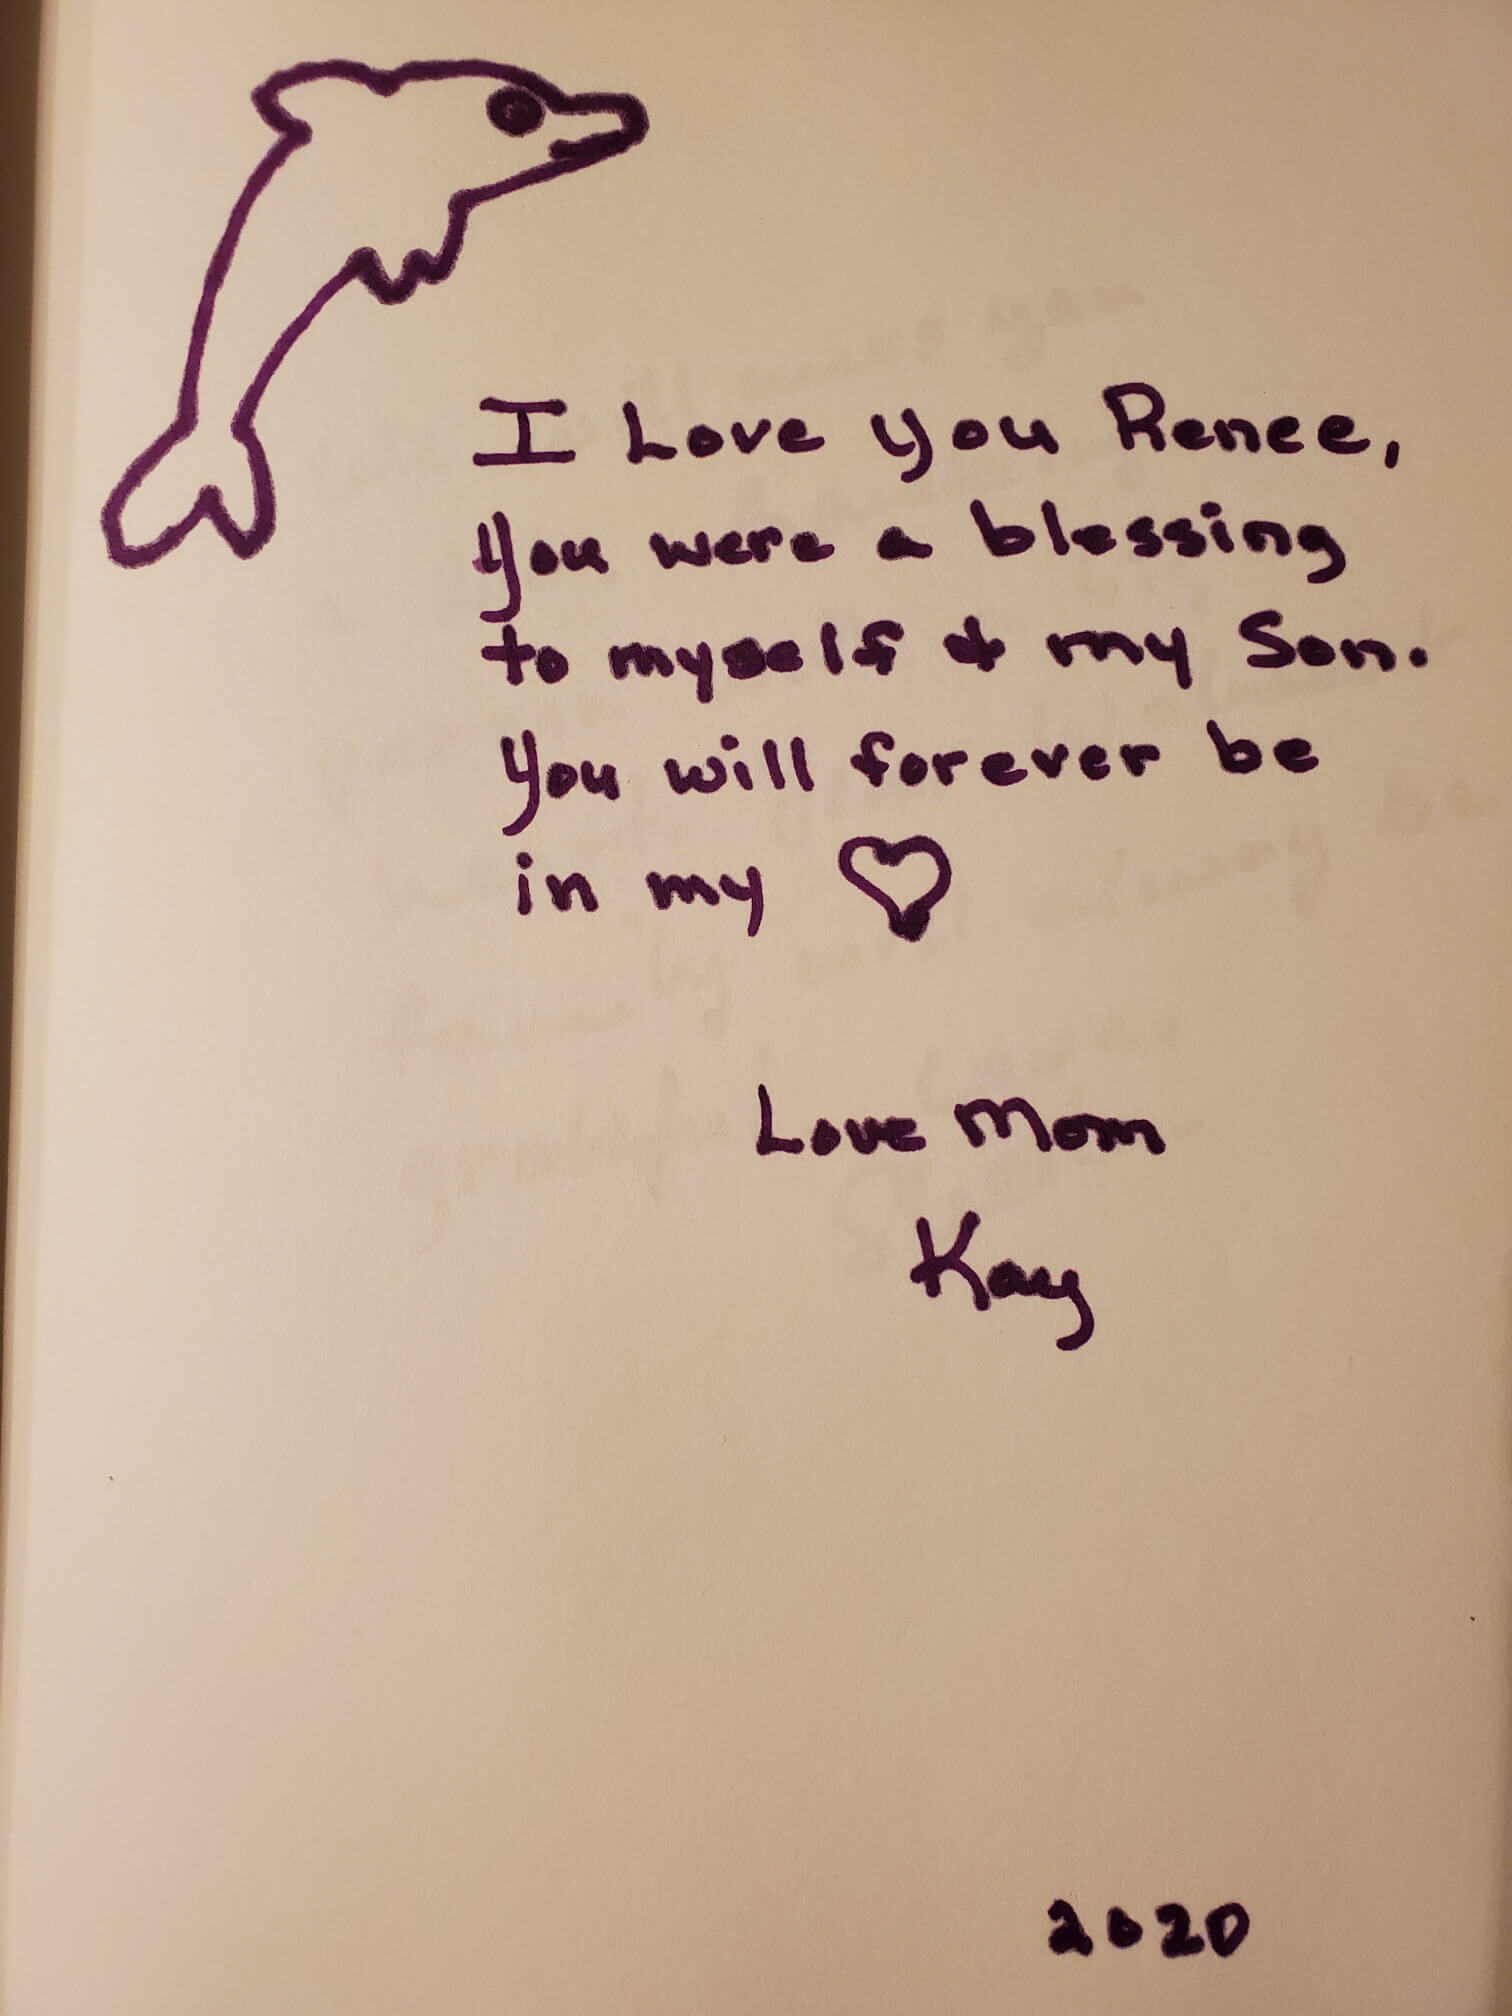 I Love you Renee,
You were a blessing
to myself & my Son.
You will forever be
in my ♡
Love Mom
Kay
2020